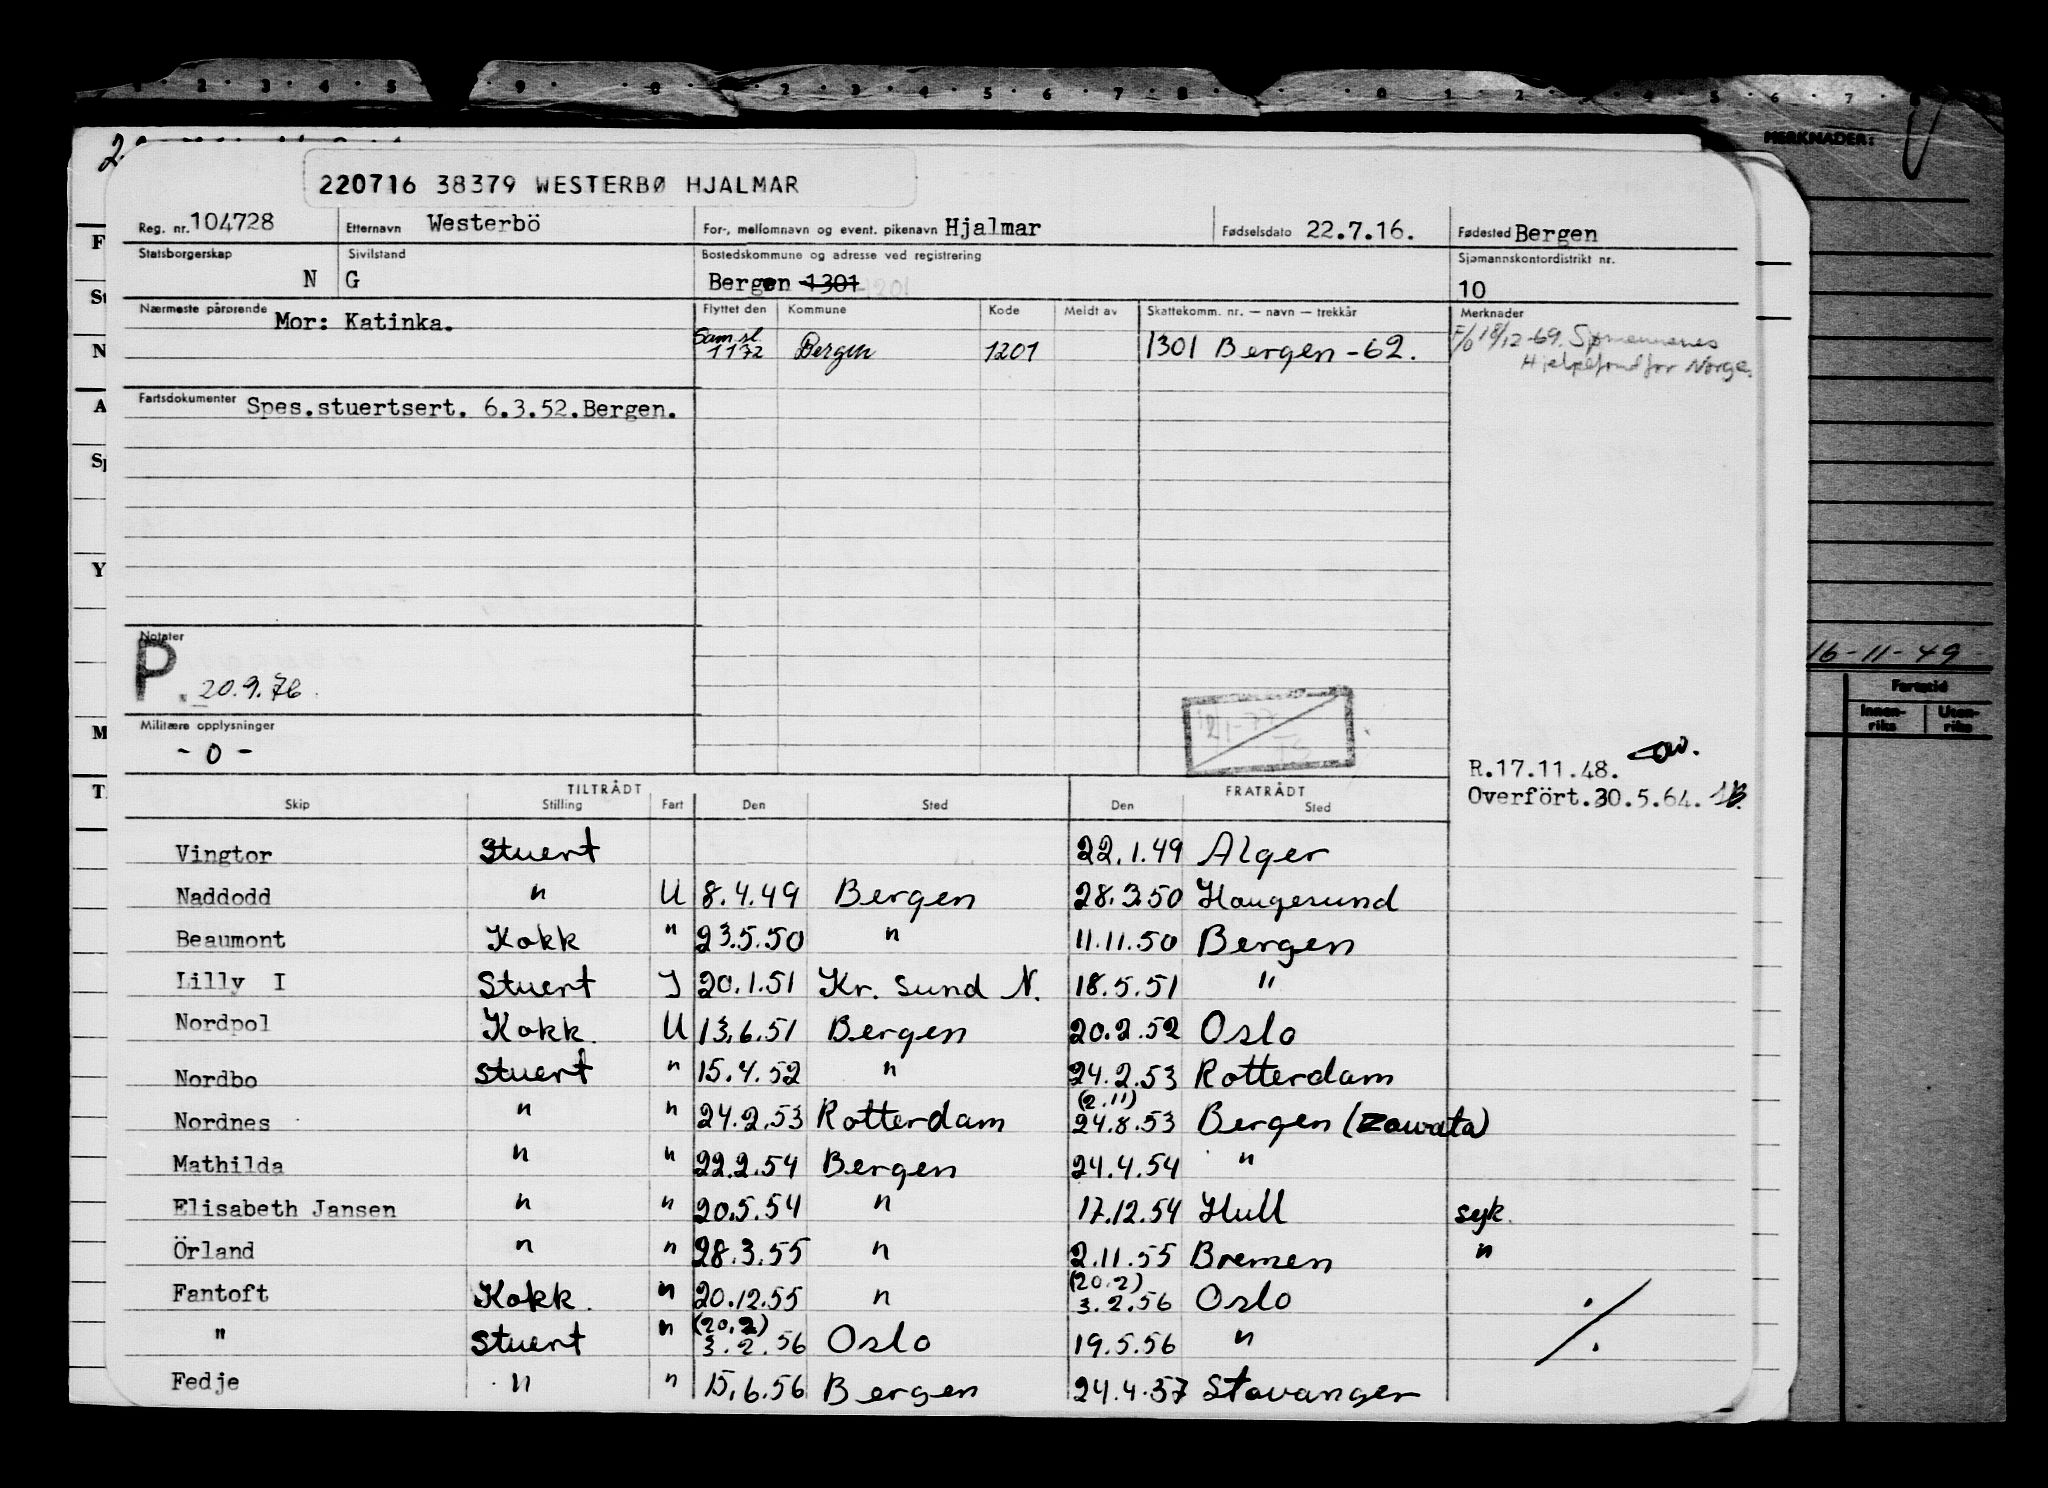 220716 38379 WESTERBØ HJALMAR
MERKNADER:
Reg. nr. 104728 Etternavn Westerbö For-, mellomnavn og event. pikenavn Hjalmar Fødselsdato 22.7.16. Fødested Bergen
Statsborgerskap N Sivilstand G Bostedskommune og adresse ved registrering Bergen 1301 1201 Sjømannskontordistrikt nr. 10
Nærmeste pårørende Mor: Katinka. Flyttet den Kommune Kode Meldt av Skattekomm. nr. — navn — trekkår Merknader
Sam.sl. 1172 Bergen 1201 1301 Bergen -62. F/o 18/12-69. Sjømennenes
Hjelpefond for Norge.
Fartsdokumenter Spes.stuertsert. 6.3.52.Bergen.
Notater
P. 20.9.76.
Militære opplysninger
- 0 -
16-11-49
Fartstid
Innen-riks Uten-riks
R.17.11.48.
Overfört.30.5.64.
TILTRÅDT FRATRÅDT
Skip Stilling Fart Den Sted Den Sted
Vingtor Stuert 22.1.49 Alger
Naddodd " U 8.4.49 Bergen 28.3.50 Haugesund
Beaumont Kokk " 23.5.50 " 11.11.50 Bergen
Lilly I Stuert I 20.1.51 Kr. sund N. 18.5.51 "
Nordpol Kokk. U 13.6.51 Bergen 20.2.52 Oslo
Nordbo Stuert " 15.4.52 " 24.2.53 Rotterdam
Nordnes " " 24.2.53 Rotterdam (2.11) 24.8.53 Bergen (Zawata)
Mathilda " " 22.2.54 Bergen 24.4.54 "
Elisabeth Jansen " " 20.5.54 " 17.12.54 Hull syk.
Örland " " 28.3.55 " 2.11.55 Bremen "
Fantoft Kokk. " 20.12.55 " (20.2) 3.2.56 Oslo ./.
" Stuert " (20.2) 3.2.56 Oslo 19.5.56 "
Fedje " " 15.6.56 Bergen 24.4.57 Stavanger